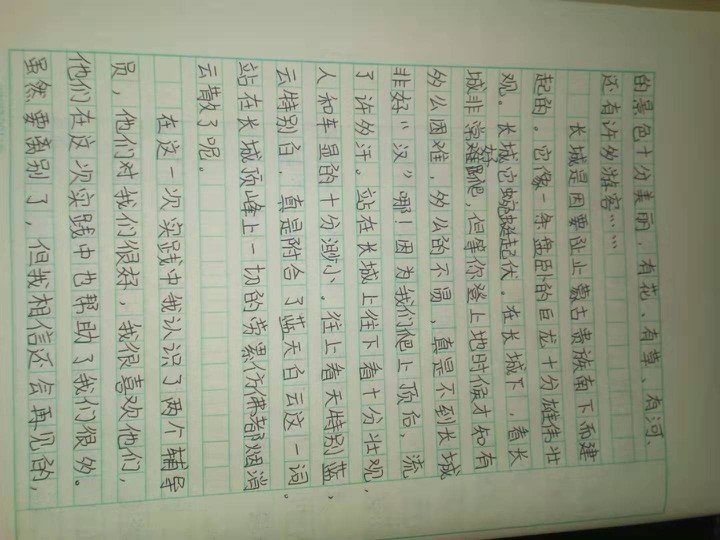 的景色十分美丽，有花、有草、有河、
还有许多游客……
长城是因要阯止蒙古贵族南下而建
起的。它像一条盘卧的巨龙十分雄伟壮
观。长城它蜿蜒起伏。在长城下，看长
城非常好爬，但等你登上地时候才知有
多么困难，多么的不易，真是不到长城
非好“汉”哪！因为我们爬上顶后，流
了许多汗。站在长城上往下看十分壮观，
人和车显的十分渺小。往上看天特别蓝，
云特别白，真是附合了蓝天白云这一词。
站在长城顶峰上一切的劳累仿佛都烟消
云散了呢。
在这一次实践中我认识了两个辅导
员，他们对我们很好，我很喜欢他们，
他们在这次实践中也帮助了我们很多。
虽然要离别了，但我相信还会再见的，